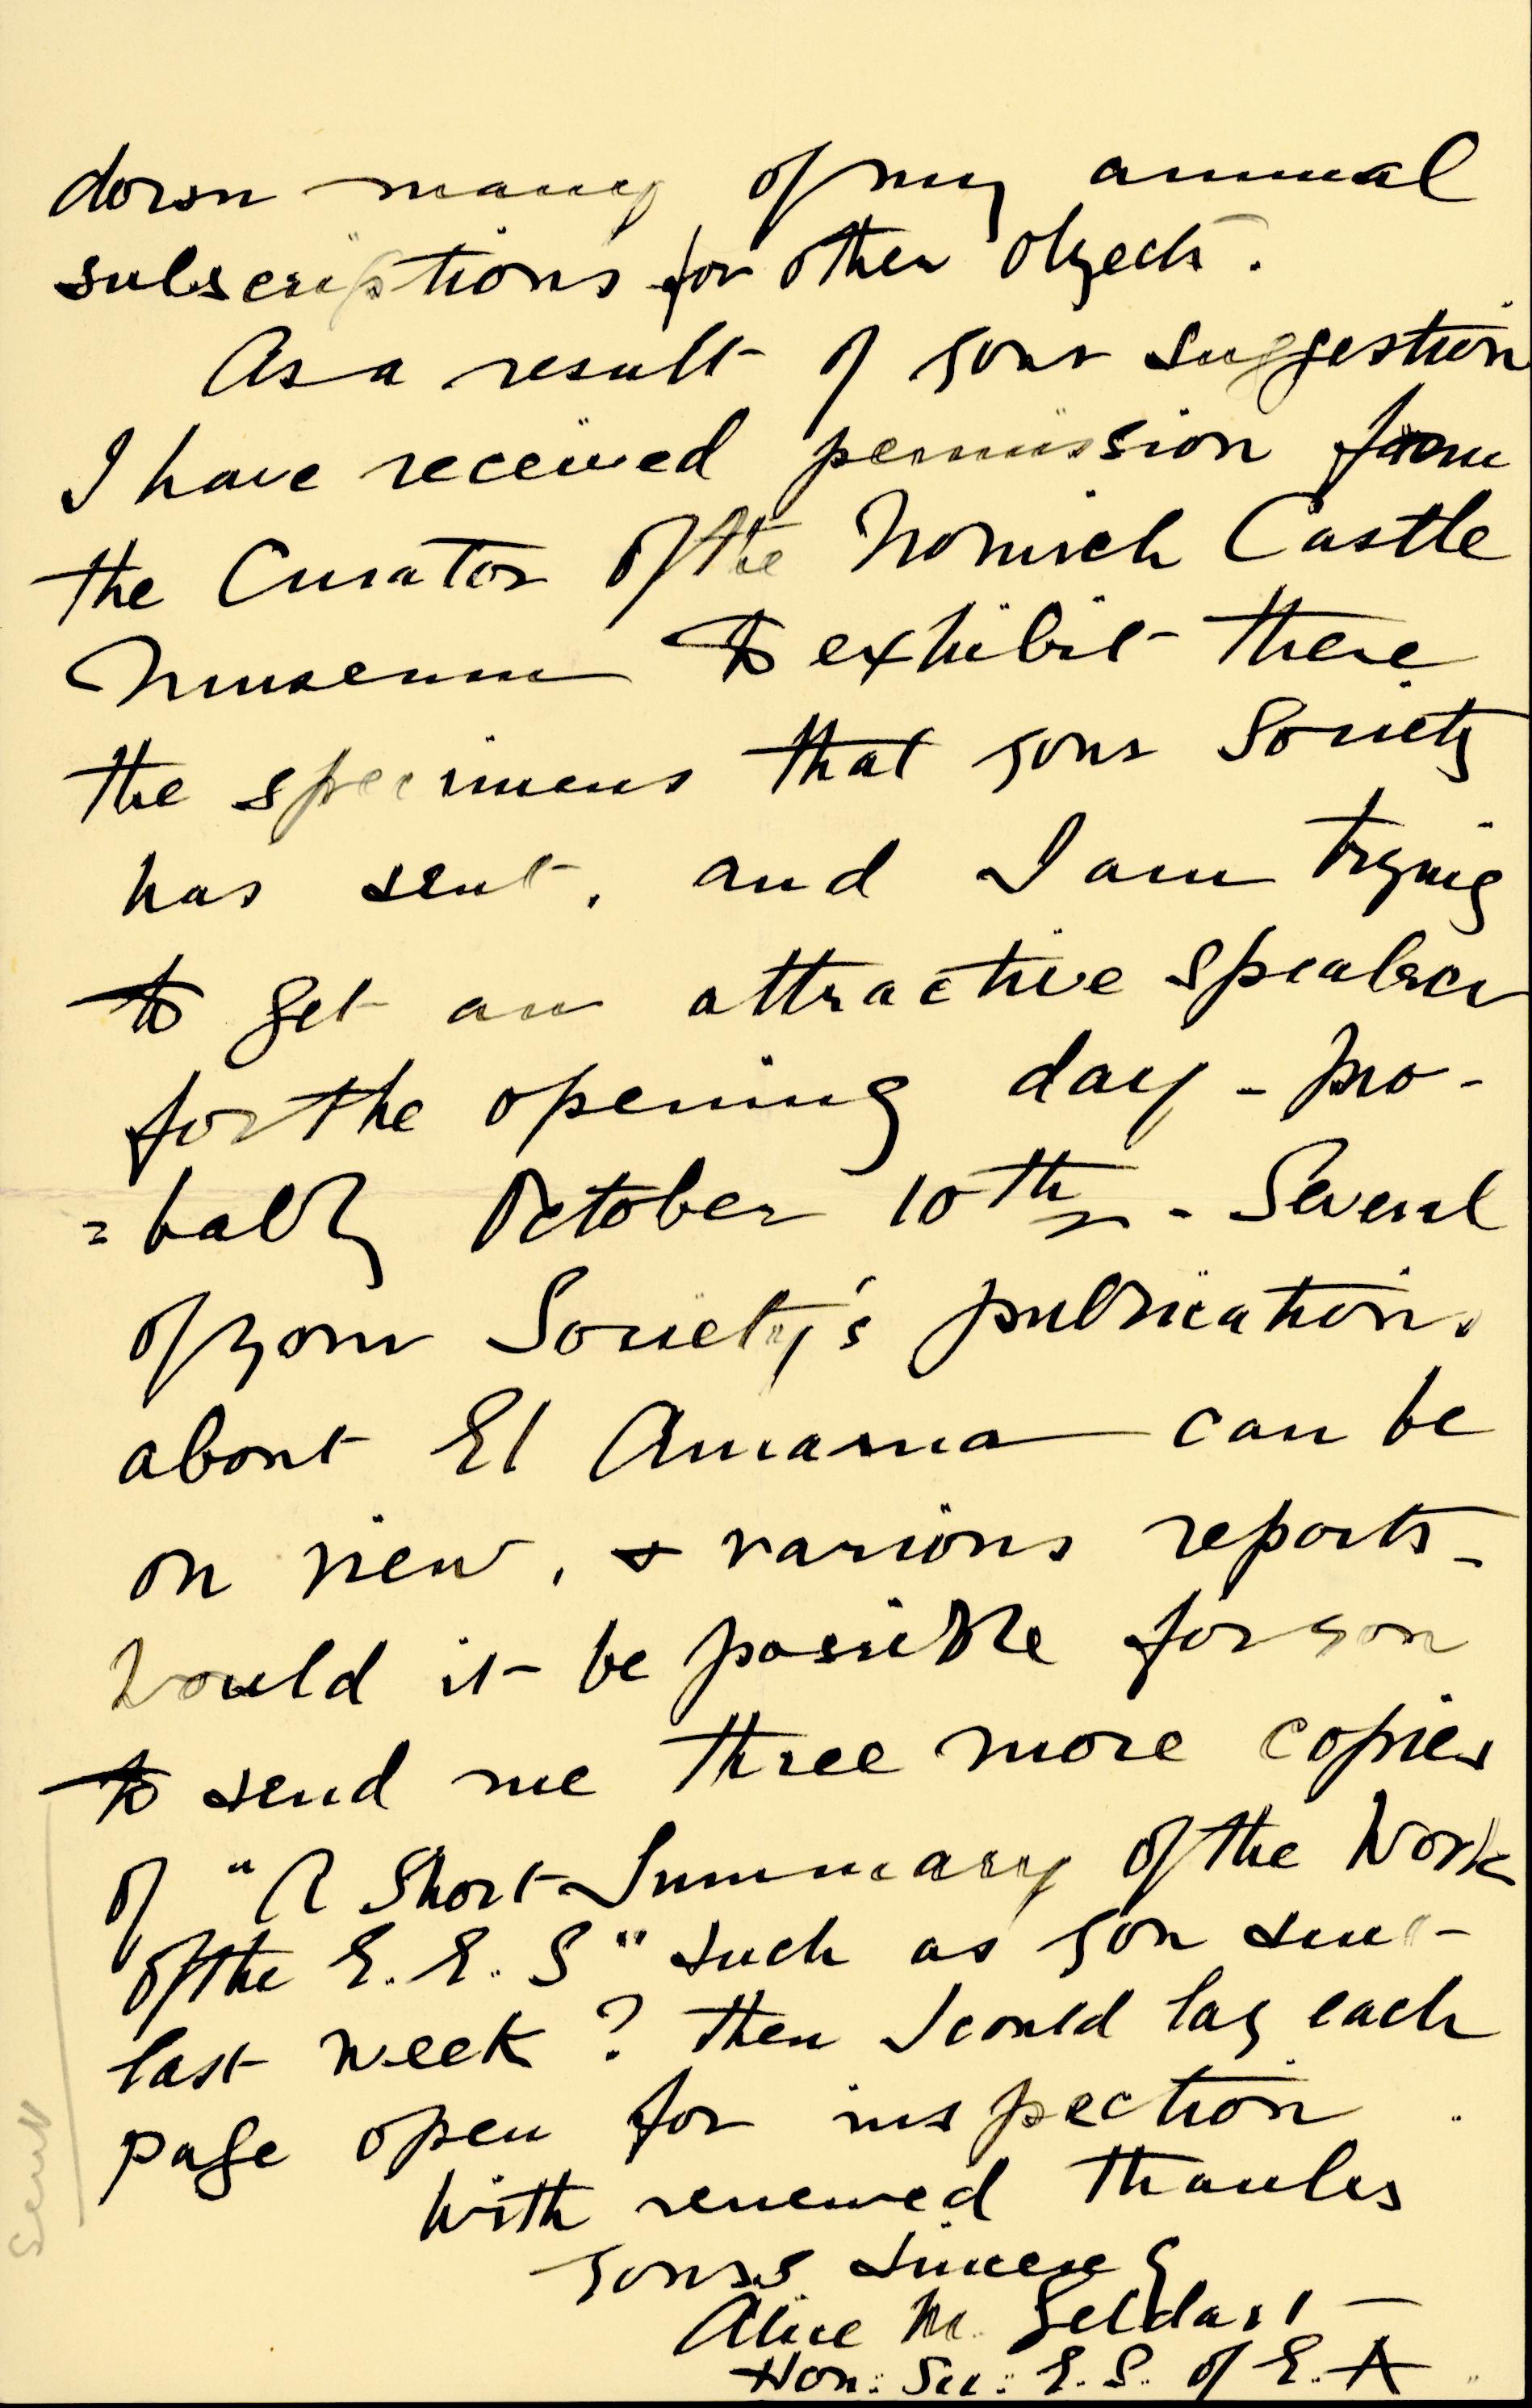 down many of my annual
subscriptions for other objects.
As a result of your suggestion
I have received permission from
the Curator of the Norwich Castle
Museum to exhibit there
the specimens that your Society
has sent, and I am trying
to get an attractive speaker
for the opening day - pro-
=bably October 10th - Several
of your Society's publications
about El Amarna can be
on view, & various reports -
Would it be possible for you
to send me three more copies
of "A Short Summary of the Work
of the E. E. S" such as you sent
last week? then I could lay each
page open for inspection.
With renewed thanks
yours sincerely
Alice M. Geldart -
Hon: Sec: E. S. of E. A
Sent